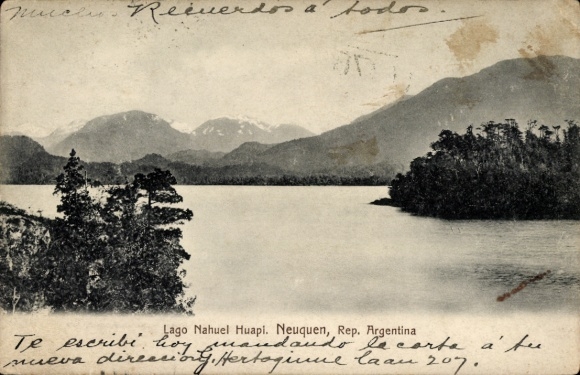 muchos Recuerdos á todos.
Lago Nahuel Huapi. Neuquen, Rep. Argentina
Te escribi hoy mandando la carta á tu
nueva direccion G. Hertoginne laan 207.